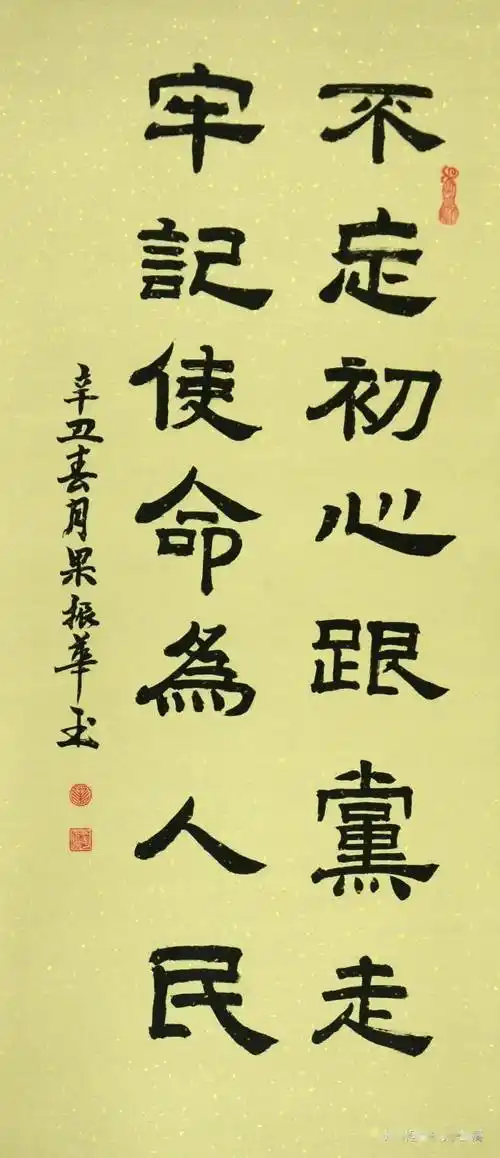 不忘初心跟黨走
牢記使命為人民
辛丑春月果振華